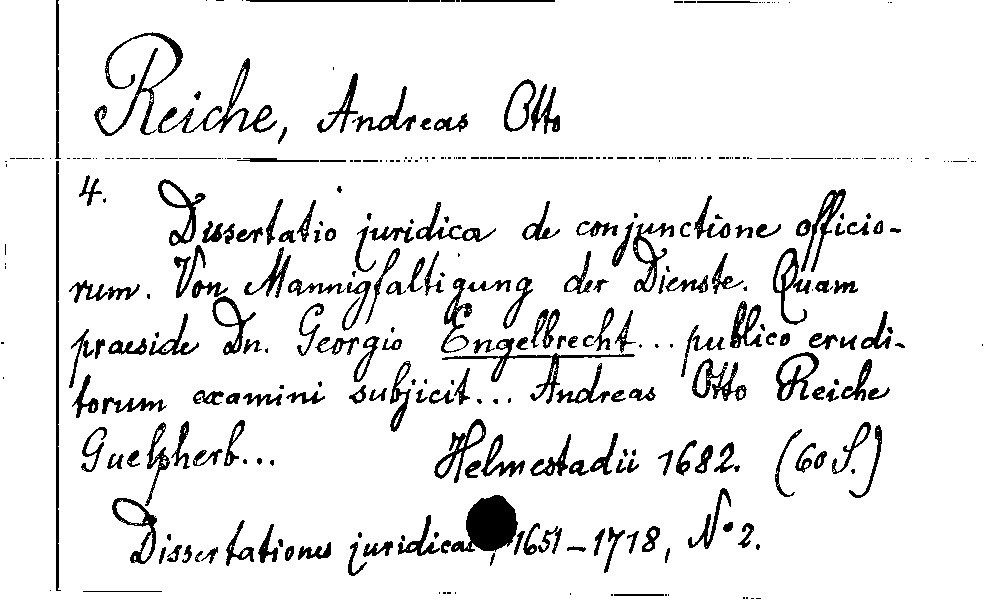 Reiche, Andreas Otto
4.
Dissertatio juridica de conjunctione officio-
rum. Von Mannigfaltigung der Dienste. Quam
praeside Dn. Georgio Engelbrecht... publico erudi-
torum examini subjicit... Andreas Otto Reiche
Guelpherb... Helmestadii 1682. (60 S.)
Dissertationes juridicae, 1651-1718, No 2.